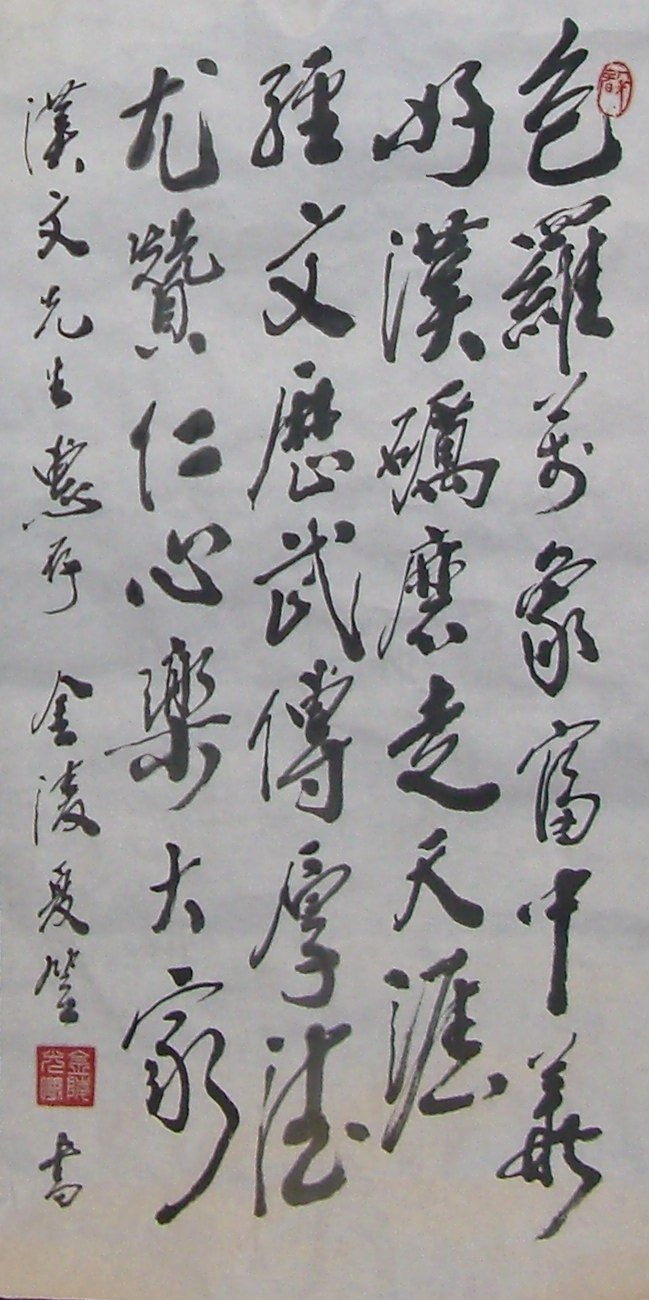 包羅萬象富中華
好漢礪磨走天涯
經文歷武傳厚德
尤贊仁心樂大家
漢文先生惠存 金陵夏 書